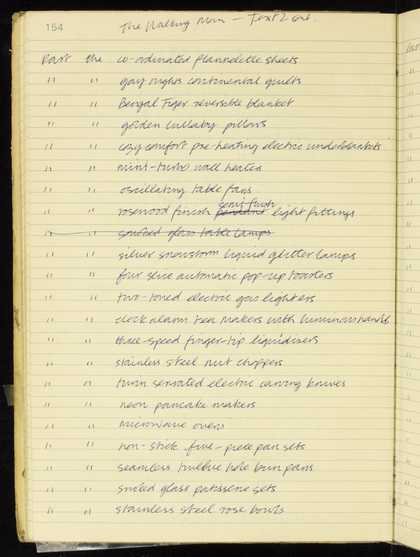 154
The Walking Man - Text 2 one.
Past the co-ordinated flannelette sheets
" " gay nights continental quilts
" " Bengal Tiger reversible blanket
" " golden lullaby pillows
" " cozy comfort pre-heating electric underblankets
" " mini-turbo wall heater
" " oscillating table fans
" " rosewood finish pendant semi flush light fittings
" " smoked glass table lamps
" " silver snowstorm liquid glitter lamps
" " four slice automatic pop-up toasters
" " two-toned electric gas lighters
" " clock alarm tea makers with luminous hands
" " three-speed finger-tip liquidizers
" " stainless steel nut choppers
" " twin serrated electric carving knives
" " neon pancake makers
" " microwave ovens
" " non-stick five-piece pan sets
" " seamless twelve hole bun pans
" " smoked glass patisserie sets
" " stainless steel rose bowls